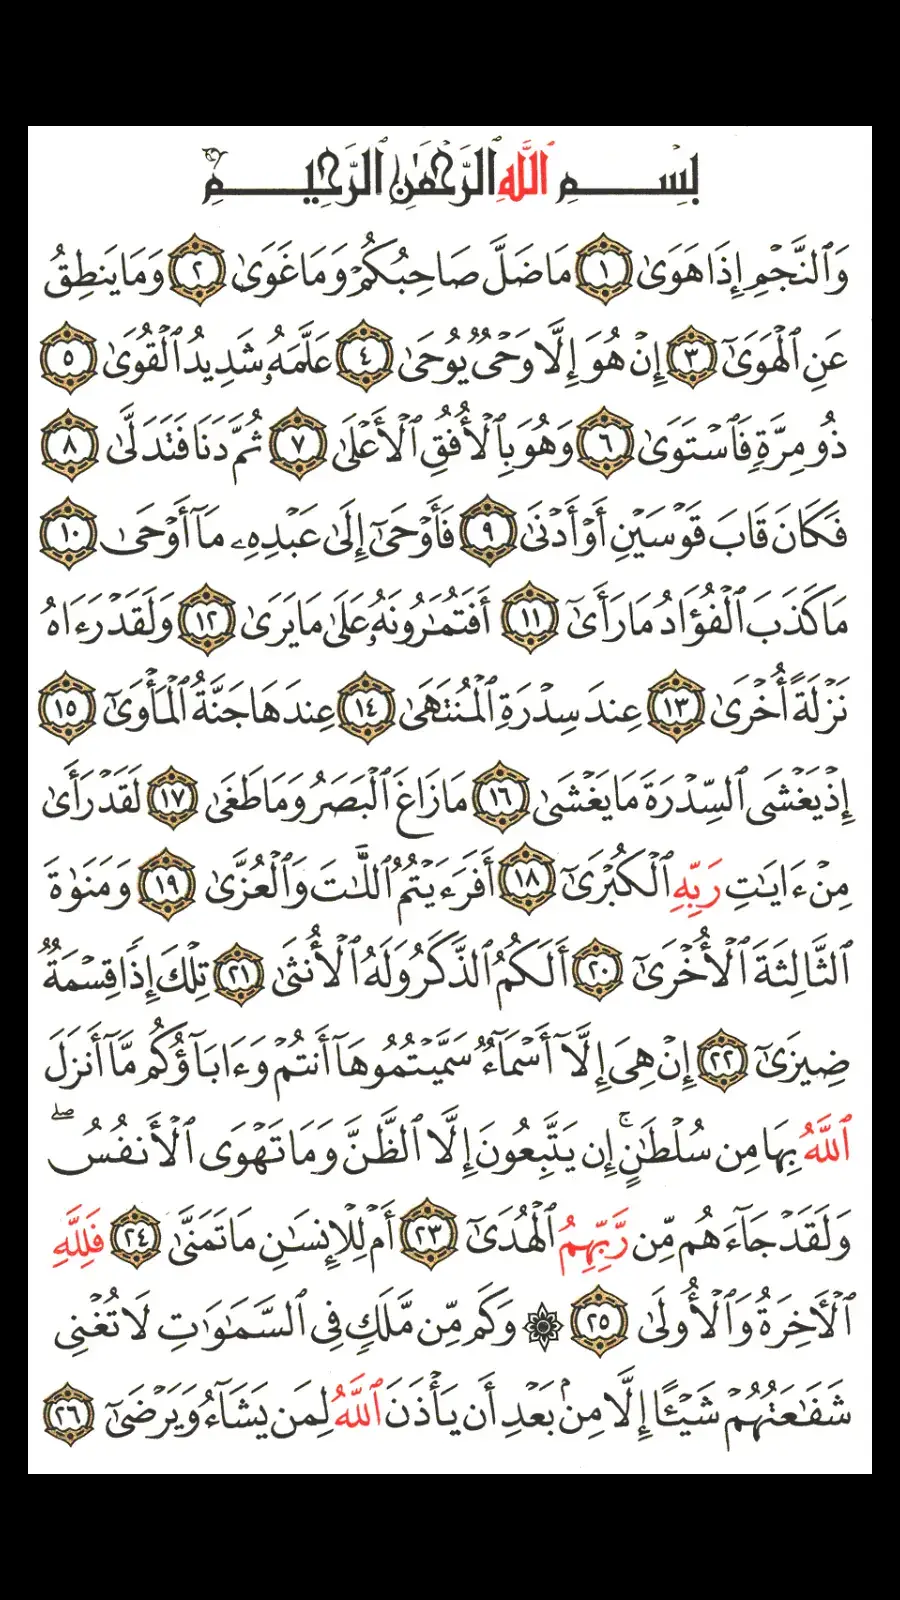 بِسْمِ ٱللَّهِ ٱلرَّحْمَٰنِ ٱلرَّحِيمِ
وَٱلنَّجْمِ إِذَا هَوَىٰ ١ مَا ضَلَّ صَاحِبُكُمْ وَمَا غَوَىٰ ٢ وَمَا يَنطِقُ
عَنِ ٱلْهَوَىٰٓ ٣ إِنْ هُوَ إِلَّا وَحْىٌ يُوحَىٰ ٤ عَلَّمَهُۥ شَدِيدُ ٱلْقُوَىٰ ٥
ذُو مِرَّةٍ فَٱسْتَوَىٰ ٦ وَهُوَ بِٱلْأُفُقِ ٱلْأَعْلَىٰ ٧ ثُمَّ دَنَا فَتَدَلَّىٰ ٨
فَكَانَ قَابَ قَوْسَيْنِ أَوْ أَدْنَىٰ ٩ فَأَوْحَىٰٓ إِلَىٰ عَبْدِهِۦ مَآ أَوْحَىٰ ١٠
مَا كَذَبَ ٱلْفُؤَادُ مَا رَأَىٰٓ ١١ أَفَتُمَٰرُونَهُۥ عَلَىٰ مَا يَرَىٰ ١٢ وَلَقَدْ رَءَاهُ
نَزْلَةً أُخْرَىٰ ١٣ عِندَ سِدْرَةِ ٱلْمُنتَهَىٰ ١٤ عِندَهَا جَنَّةُ ٱلْمَأْوَىٰٓ ١٥
إِذْ يَغْشَى ٱلسِّدْرَةَ مَا يَغْشَىٰ ١٦ مَا زَاغَ ٱلْبَصَرُ وَمَا طَغَىٰ ١٧ لَقَدْ رَأَىٰ
مِنْ ءَايَٰتِ رَبِّهِ ٱلْكُبْرَىٰٓ ١٨ أَفَرَءَيْتُمُ ٱللَّٰتَ وَٱلْعُزَّىٰ ١٩ وَمَنَوٰةَ
ٱلثَّالِثَةَ ٱلْأُخْرَىٰٓ ٢٠ أَلَكُمُ ٱلذَّكَرُ وَلَهُ ٱلْأُنثَىٰ ٢١ تِلْكَ إِذًا قِسْمَةٌ
ضِيزَىٰٓ ٢٢ إِنْ هِىَ إِلَّآ أَسْمَآءٌ سَمَّيْتُمُوهَآ أَنتُمْ وَءَابَآؤُكُم مَّآ أَنزَلَ
ٱللَّهُ بِهَا مِن سُلْطَٰنٍ ۚ إِن يَتَّبِعُونَ إِلَّا ٱلظَّنَّ وَمَا تَهْوَى ٱلْأَنفُسُ ۖ
وَلَقَدْ جَآءَهُم مِّن رَّبِّهِمُ ٱلْهُدَىٰٓ ٢٣ أَمْ لِلْإِنسَٰنِ مَا تَمَنَّىٰ ٢٤ فَلِلَّهِ
ٱلْءَاخِرَةُ وَٱلْأُولَىٰ ٢٥ ۞ وَكَم مِّن مَّلَكٍ فِى ٱلسَّمَٰوَٰتِ لَا تُغْنِى
شَفَٰعَتُهُمْ شَيْـًٔا إِلَّا مِنۢ بَعْدِ أَن يَأْذَنَ ٱللَّهُ لِمَن يَشَآءُ وَيَرْضَىٰٓ ٢٦